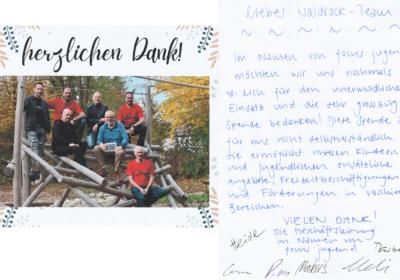 herzlichen Dank!
Liebes Waldrock-Team
Im Namen von focus jugend
möchten wir uns nochmals
für den unermüdlichen
Einsatz und die sehr grosszügige
Spende bedanken! Diese Spende ist
für uns nicht selbstverständlich.
Sie ermöglicht unseren Kindern
und Jugendlichen zusätzliche
Angebote, Freizeitbeschäftigungen
und Förderungen in
Bereichen.
VIELEN DANK!
Die Geschäftsleitung
im Namen von
focus jugend
Heidi
Markus